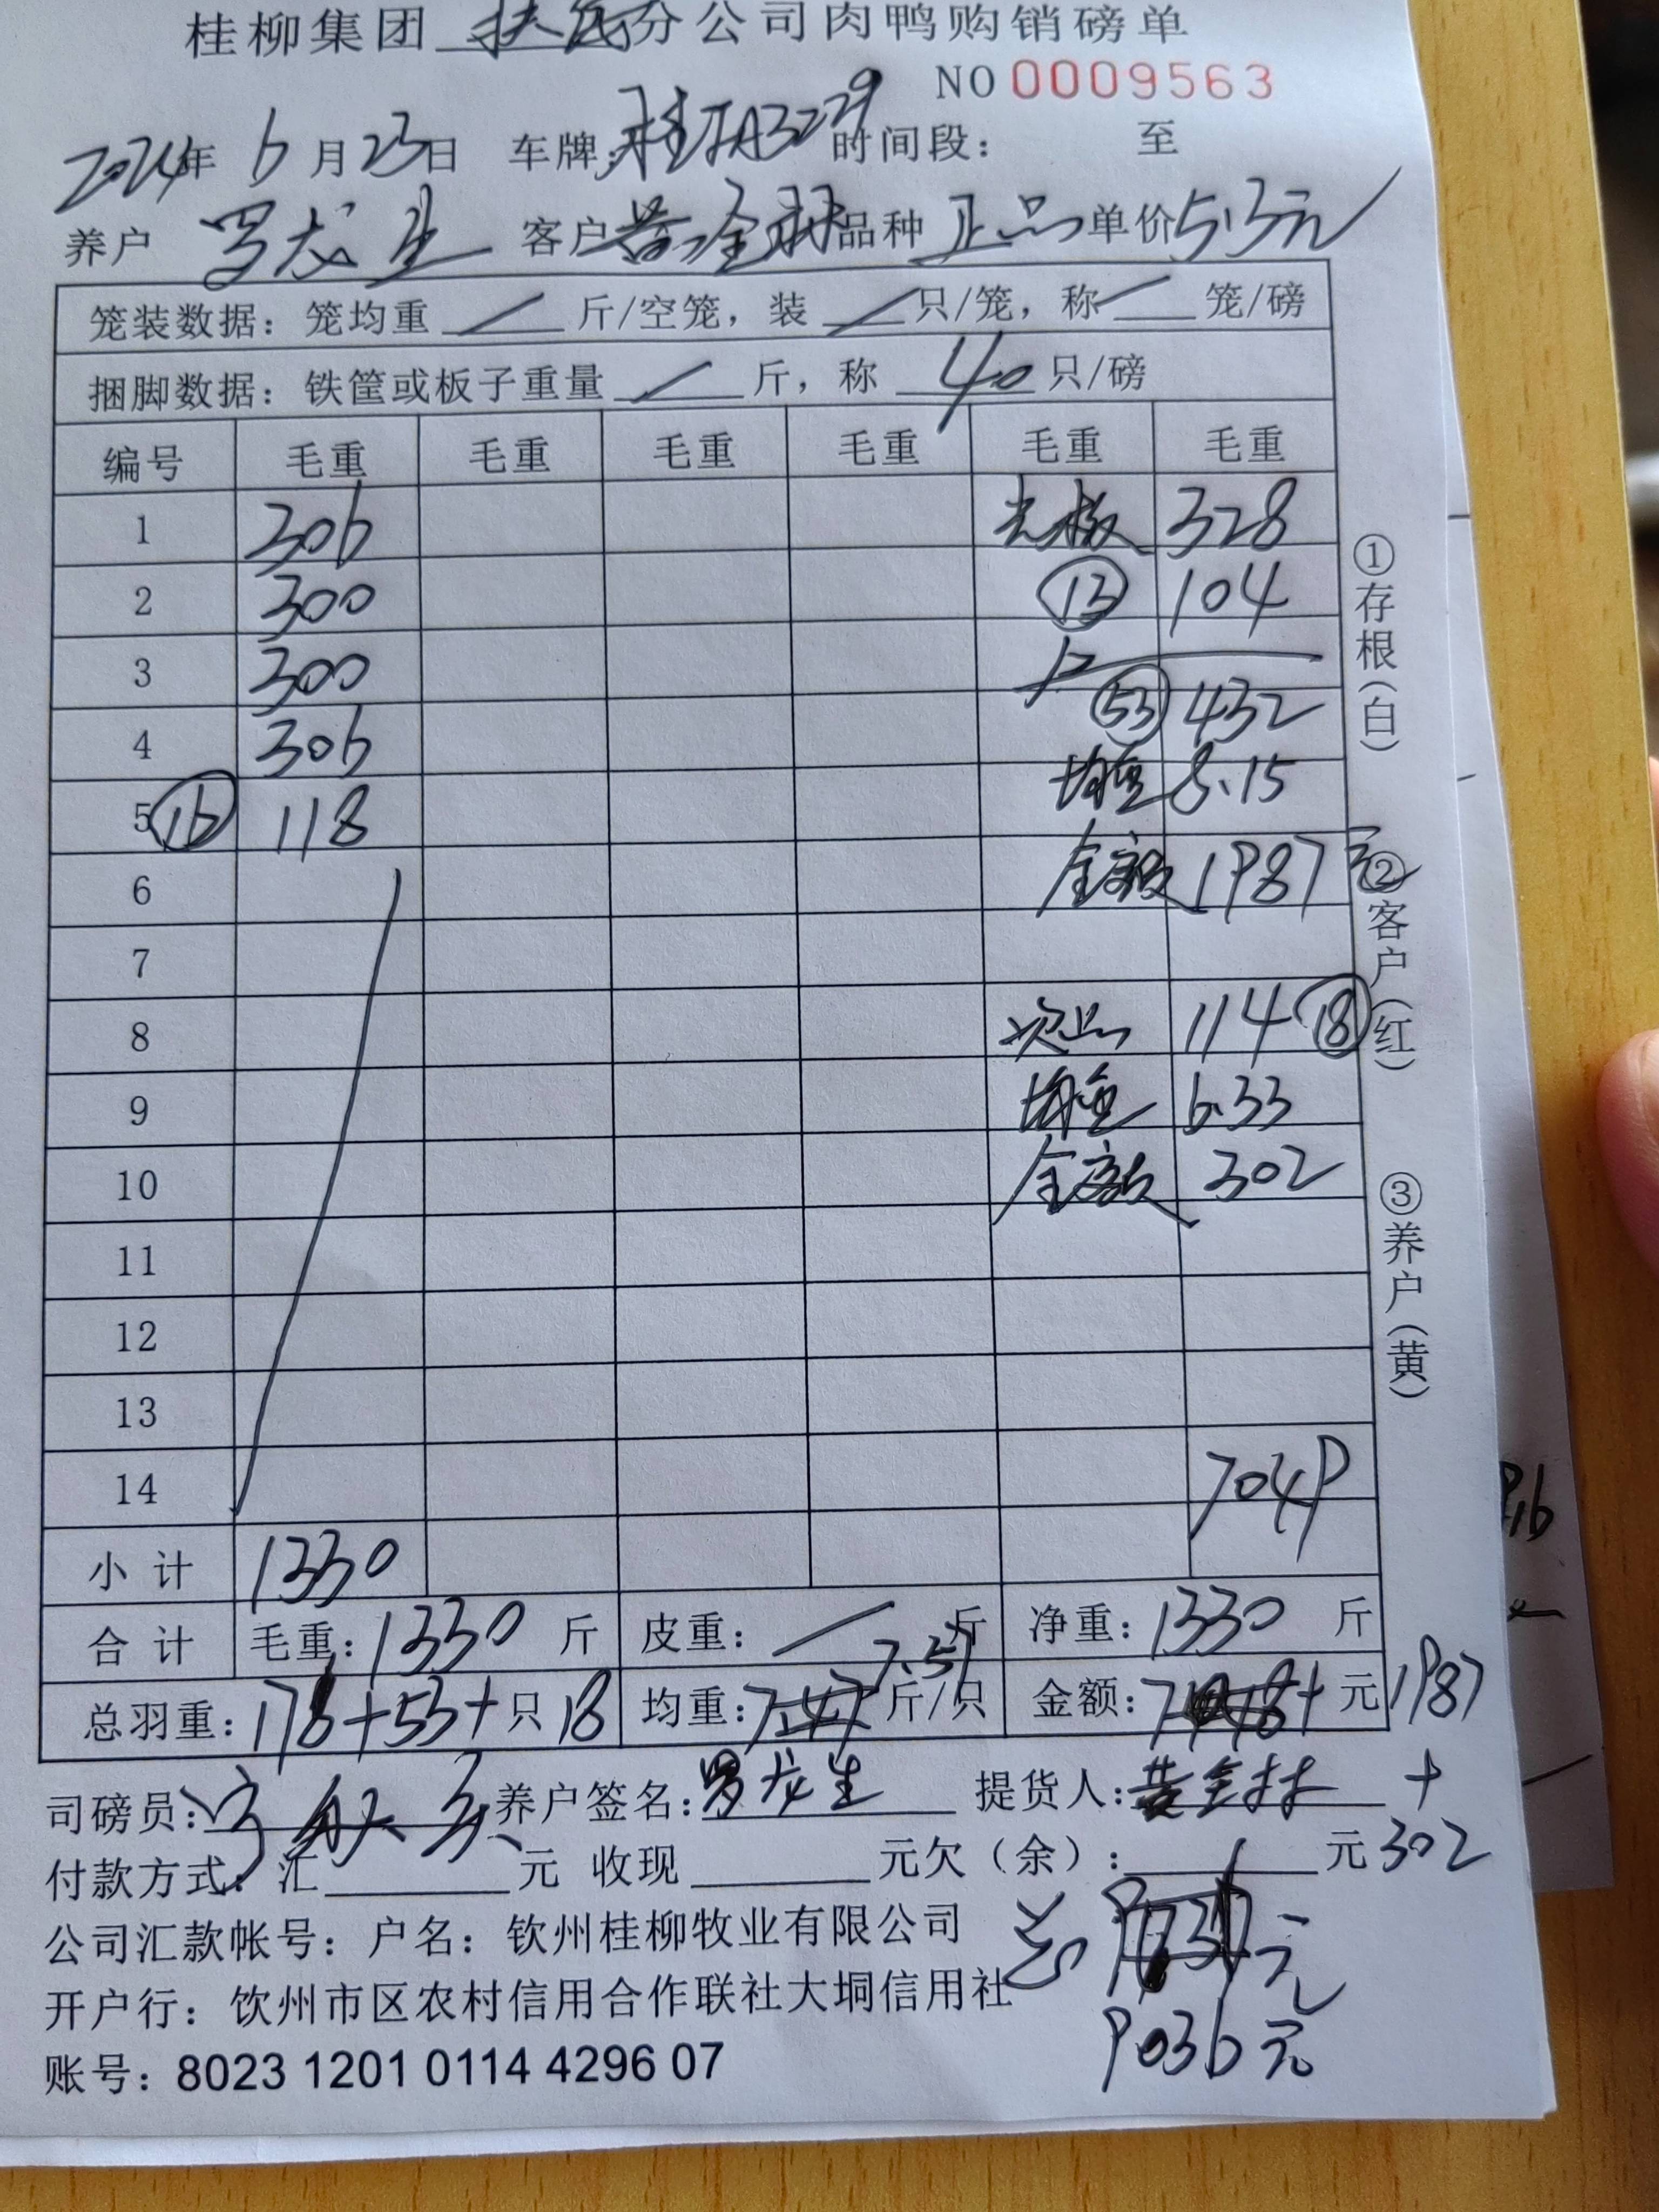 桂柳集团 扶民分公司肉鸭购销磅单
NO 0009563
2024年 6月23日 车牌:桂 A3229 时间段: 至
养户 罗龙生 客户 黄全林 品种 正品 单价 5.3元
笼装数据:笼均重 / 斤/空笼,装 / 只/笼,称 / 笼/磅
捆脚数据:铁筐或板子重量 / 斤,称 40 只/磅
编号 毛重 毛重 毛重 毛重 毛重 毛重
1 306 光板 328
2 300 ⑬ 104
3 300
4 306 (53) 432
均重 8.15
5 ⑯ 118
金额 1987元
6
7
8 次品 114 ⑱
9 均重 6.33
10 金额 302
11
12
13
14 7049
小计 1330
合计 毛重:1330 斤 皮重: / 斤 净重:1330 斤
总羽重:176+53+只18 均重:7.47 7.57 斤/只 金额: 元 1987
司磅员: 养户签名:罗龙生 提货人:黄全林 +
付款方式:汇 元 收现 元欠(余): / 元 302
公司汇款帐号:户名:钦州桂柳牧业有限公司
总 元
开户行:饮州市区农村信用合作联社大垌信用社
9036元
账号:8023 1201 0114 4296 07
①存根(白)
②客户(红)
③养户(黄)